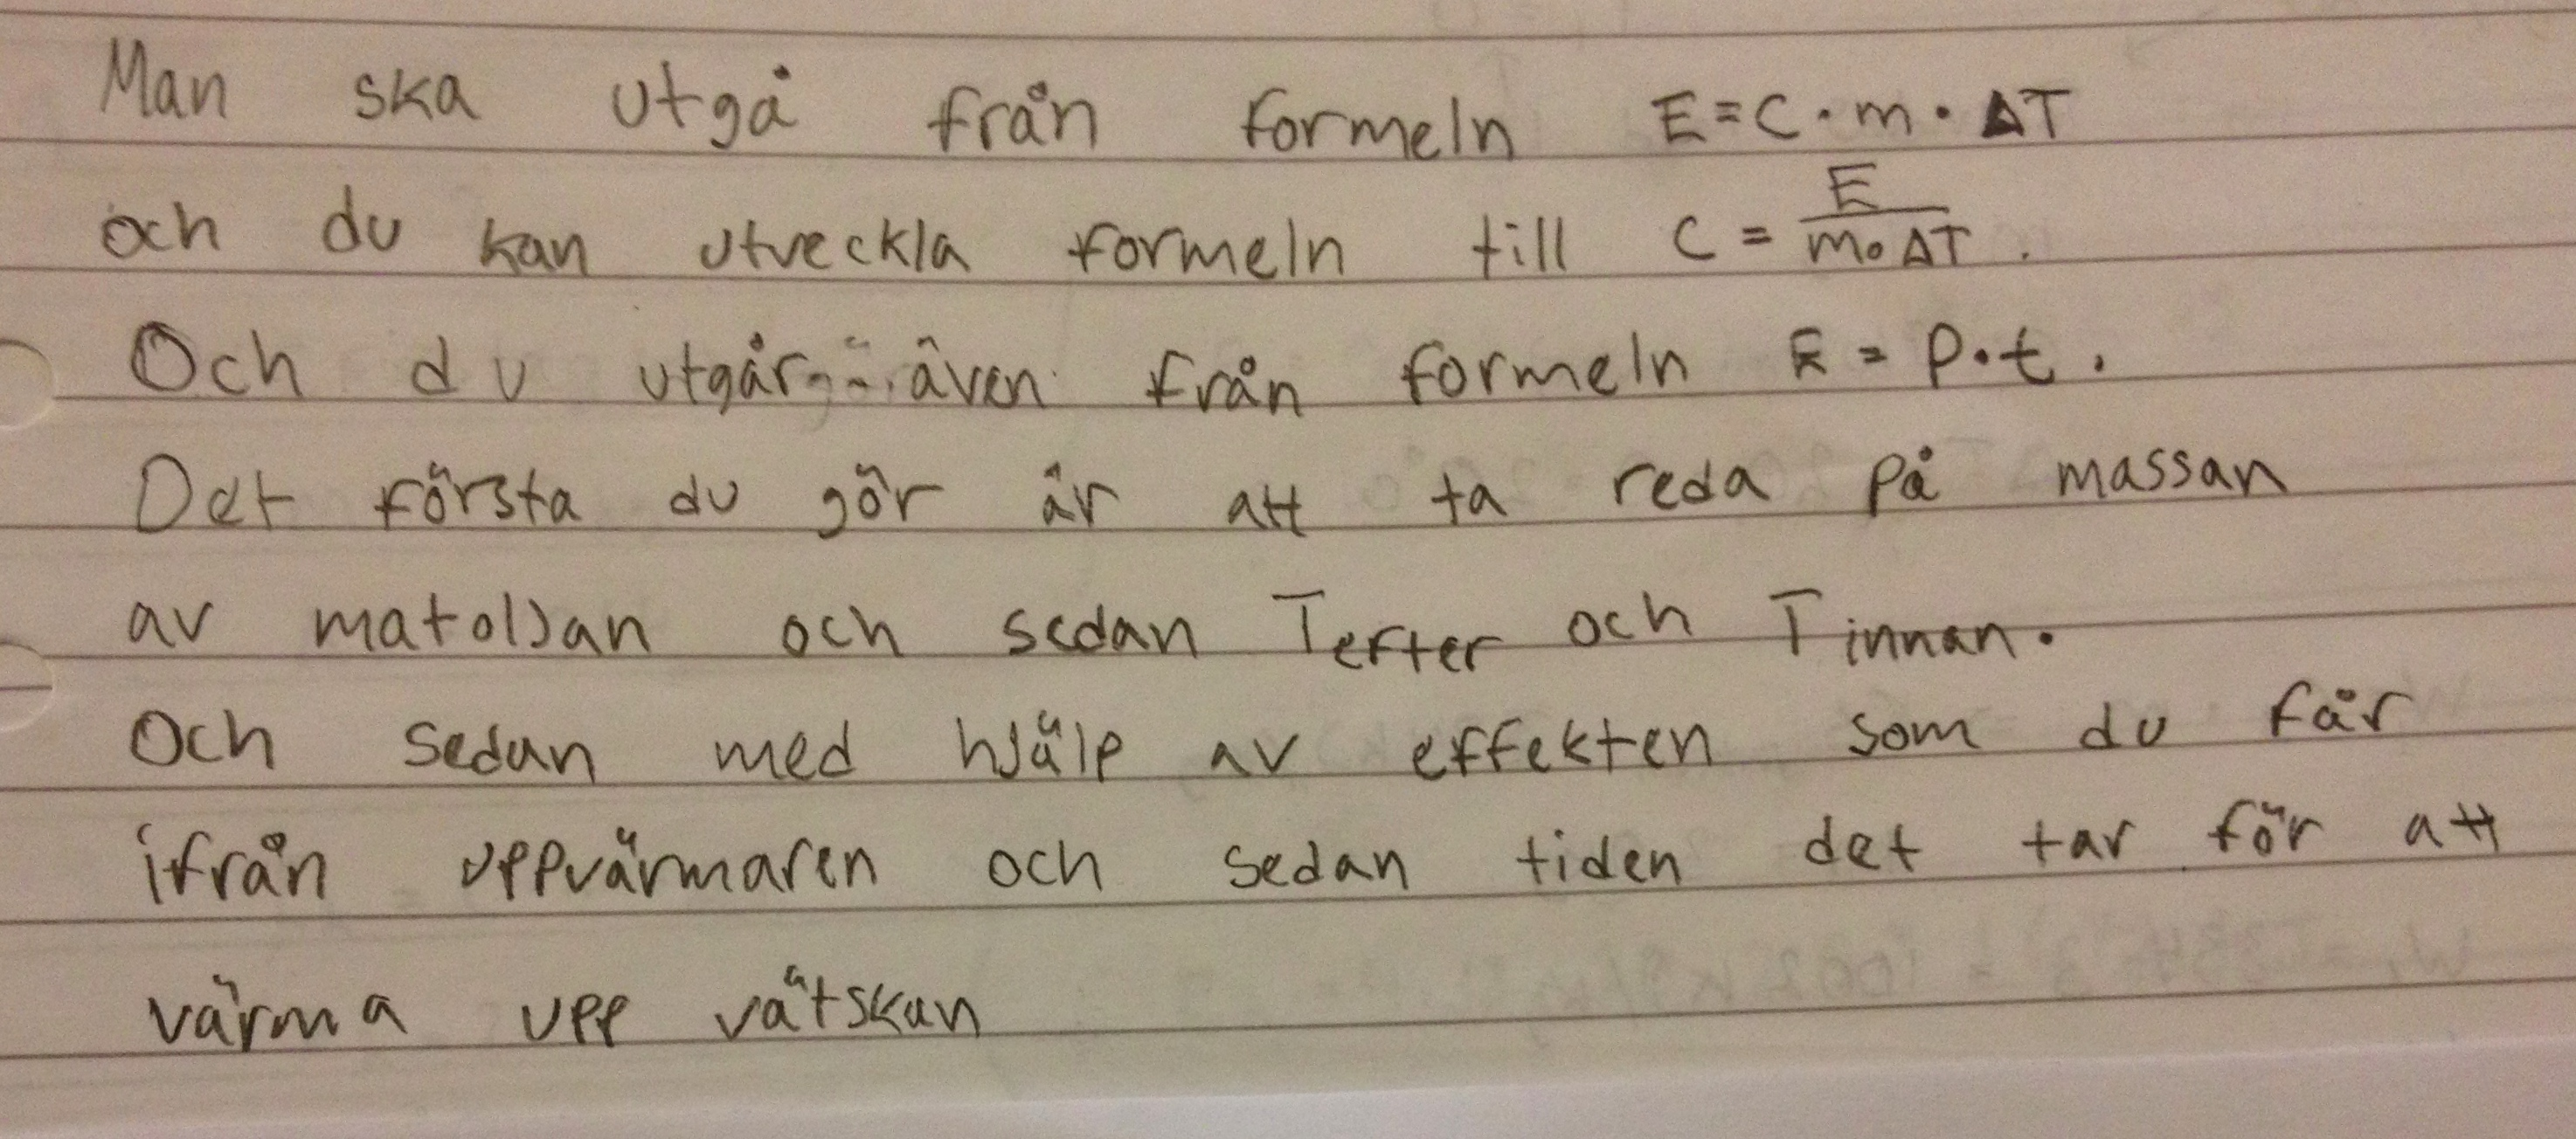 Man ska utgå från formeln E = C · m · ΔT
och du kan utveckla formeln till C = E / (m · ΔT).
Och du utgår även från formeln E = P · t.
Det första du gör är att ta reda på massan
av matoljan och sedan T efter och T innan.
Och sedan med hjälp av effekten som du får
ifrån uppvärmaren och sedan tiden det tar för att
värma upp vätskan